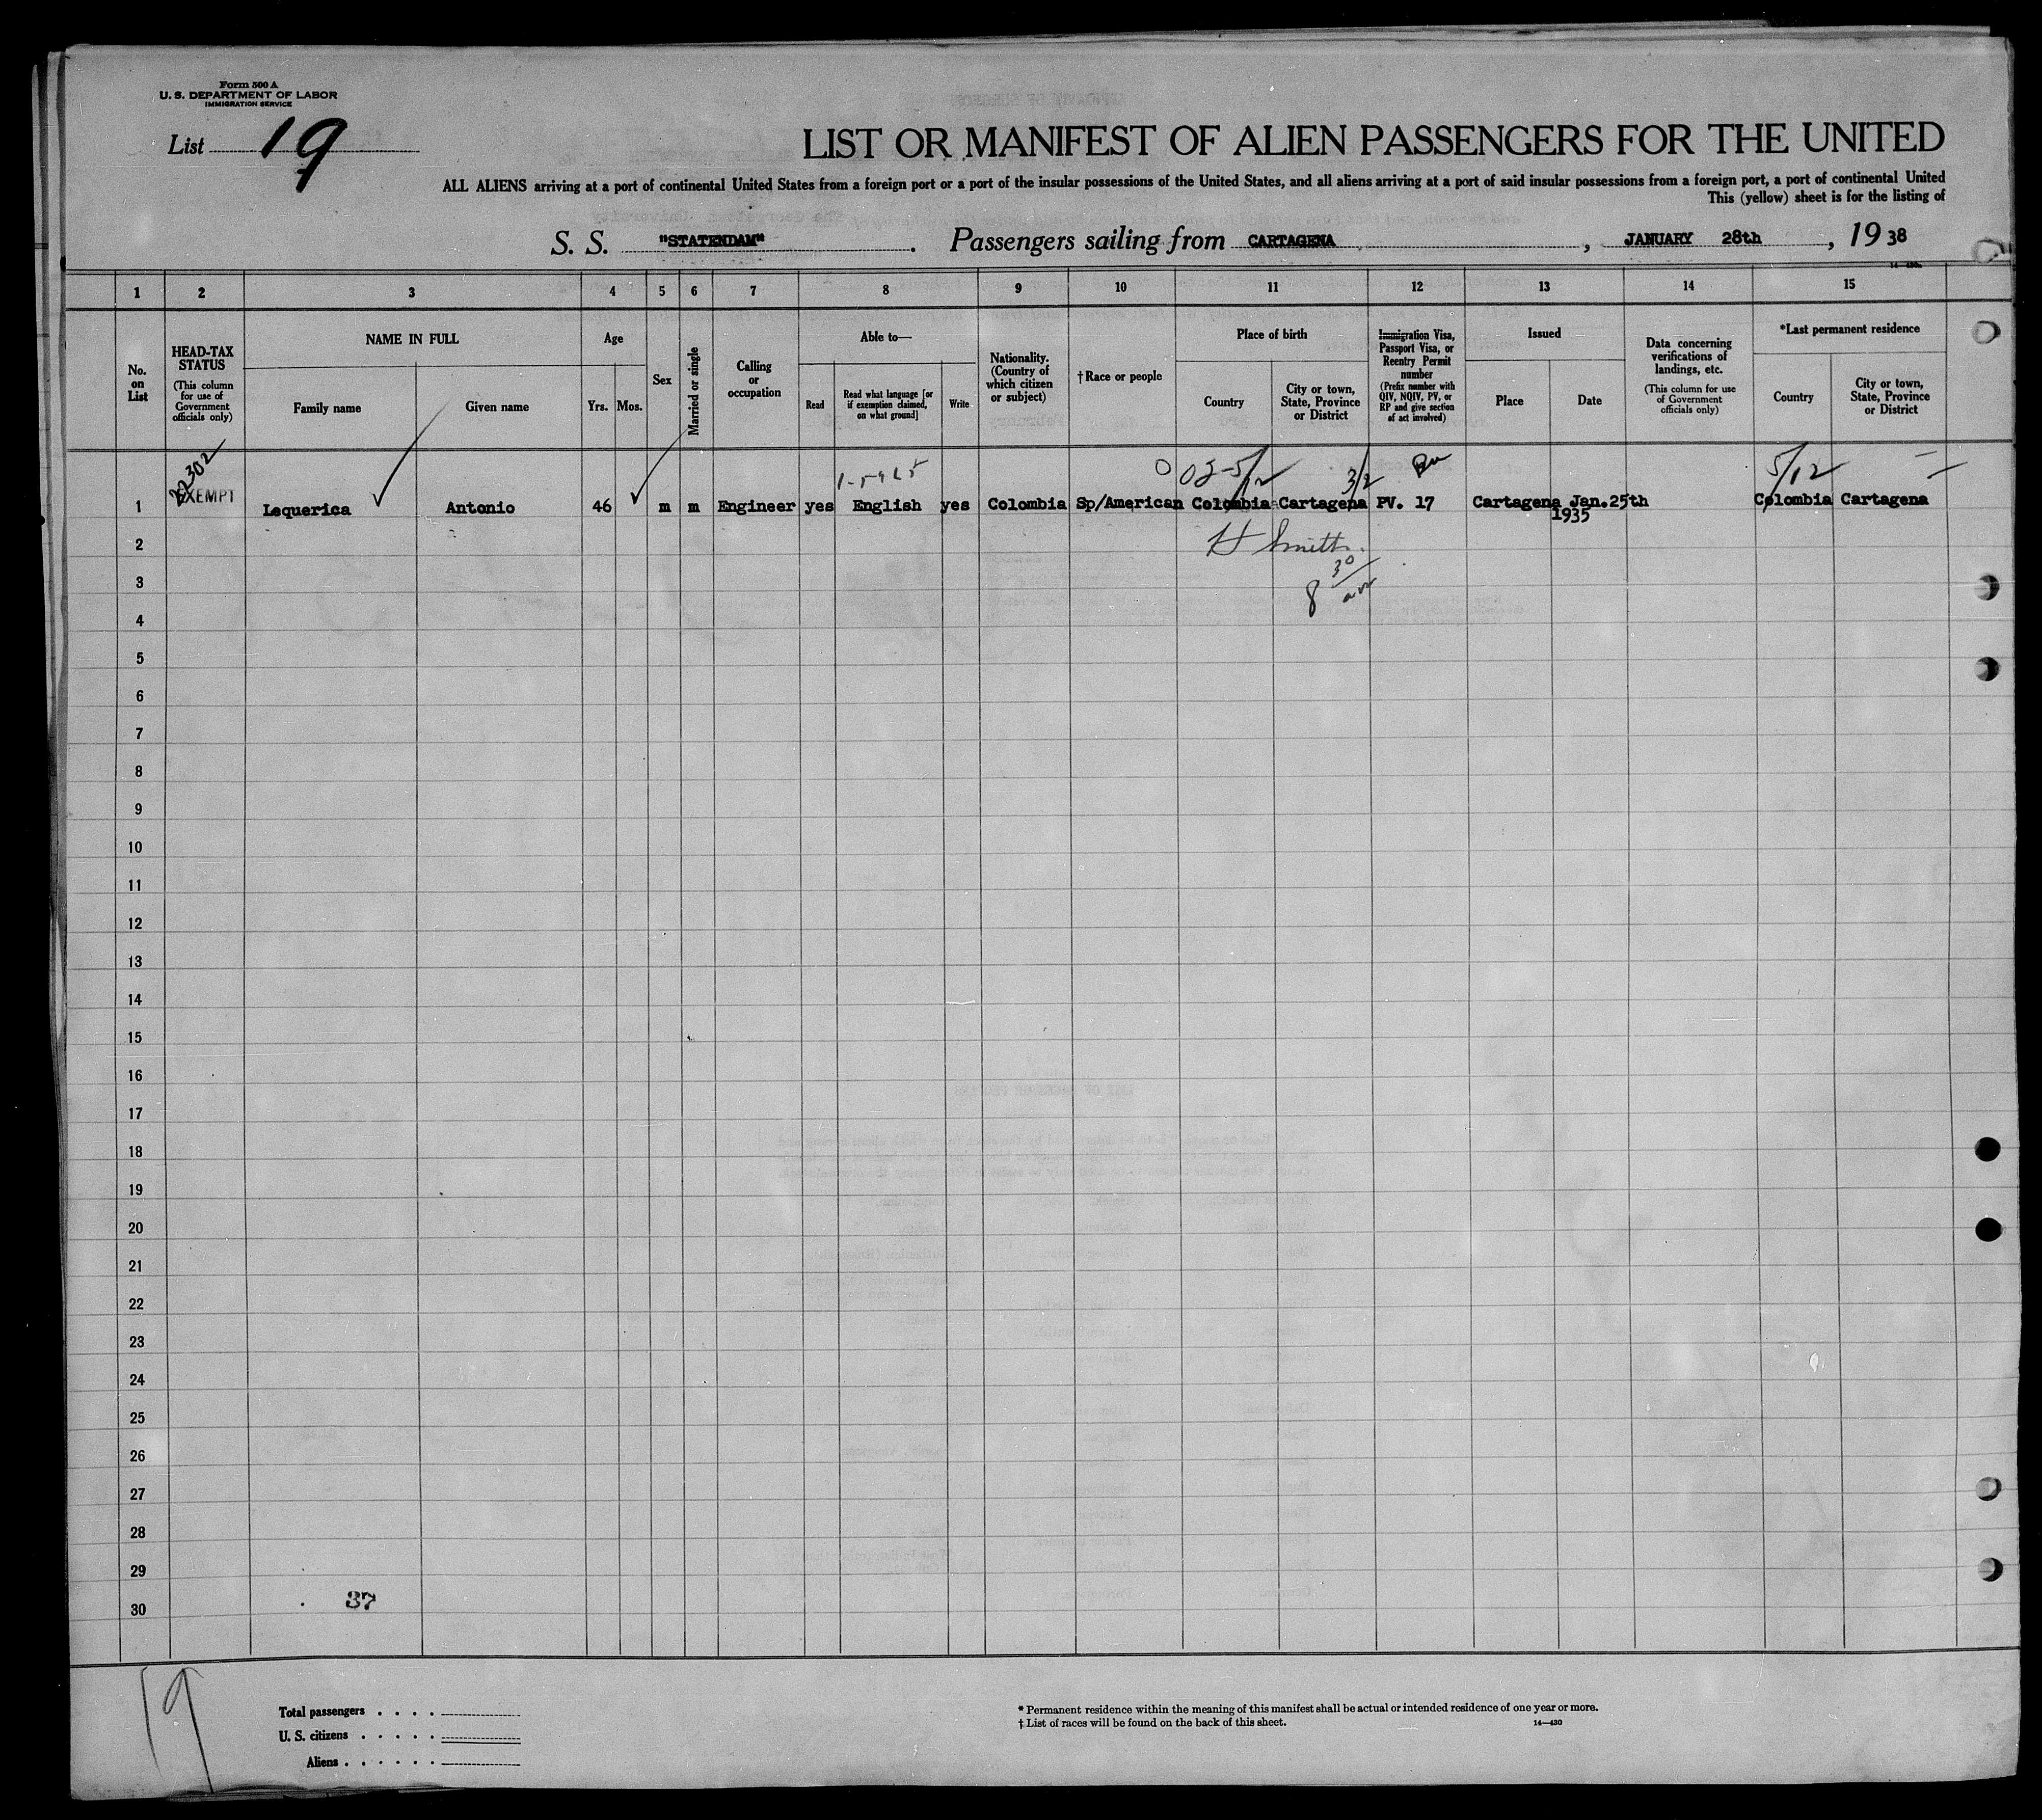 Form 500 A
U. S. DEPARTMENT OF LABOR
IMMIGRATION SERVICE
List 19
LIST OR MANIFEST OF ALIEN PASSENGERS FOR THE UNITED
ALL ALIENS arriving at a port of continental United States from a foreign port or a port of the insular possessions of the United States, and all aliens arriving at a port of said insular possessions from a foreign port, a port of continental United
This (yellow) sheet is for the listing of
S. S. "STATENDAM". Passengers sailing from CARTAGENA, JANUARY 28th, 19 38
1 2 3 4 5 6 7 8 9 10 11 12 13 14 15
No. on List
HEAD-TAX STATUS
(This column for use of Government officials only)
NAME IN FULL
Family name
Given name
Age
Yrs. Mos.
Sex
Married or single
Calling or occupation
Able to—
Read
Read what language [or if exemption claimed, on what ground]
Write
Nationality. (Country of which citizen or subject)
†Race or people
Place of birth
Country
City or town, State, Province or District
Immigration Visa, Passport Visa, or Reentry Permit number
(Prefix number with QIV, NQIV, PV, or RP and give section of act involved)
Issued
Place
Date
Data concerning verifications of landings, etc.
(This column for use of Government officials only)
*Last permanent residence
Country
City or town, State, Province or District
5/12
3/2
5/12
1 EXEMPT Lequerica Antonio 46 m m Engineer yes English yes Colombia Sp/American Colombia Cartagena PV. 17 Cartagena Jan.25th Colombia Cartagena
1935
2 H Smith
3
8 30
4
5
6
7
8
9
10
11
12
13
14
15
16
17
18
19
20
21
22
23
24
25
26
27
28
29
37
30
19
Total passengers . . . .
U. S. citizens . . . . .
Aliens . . . . . .
* Permanent residence within the meaning of this manifest shall be actual or intended residence of one year or more.
† List of races will be found on the back of this sheet.
14—430